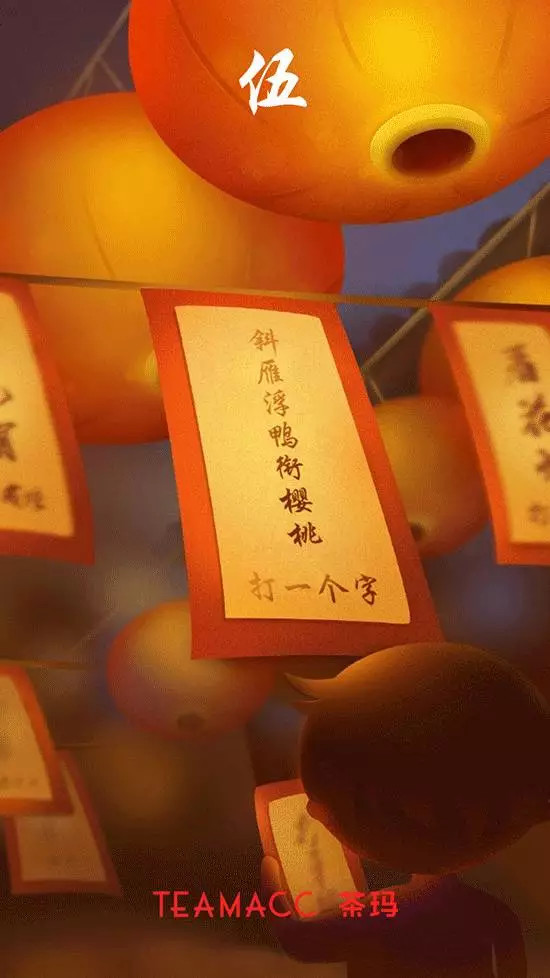 伍
斜雁浮鸭衔樱桃
打一个字
TEAMACC 茶玛